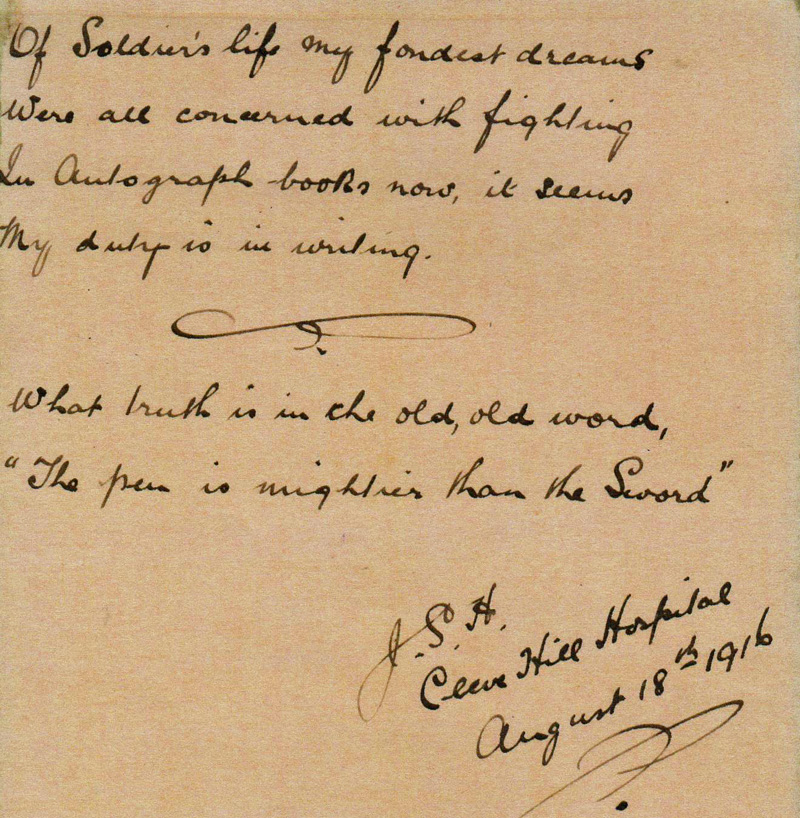 Of Soldier's life my fondest dreams
Were all concerned with fighting
In Autograph books now, it seems
My duty is in writing.
What truth is in the old, old word,
"The pen is mightier than the Sword"
J.S.H.
Cleeve Hill Hospital
August 18th 1916